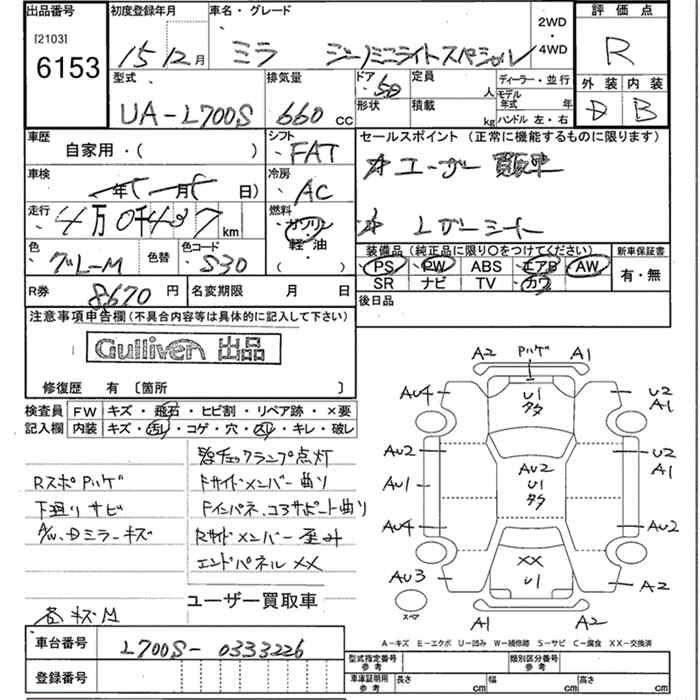 出品番号 初度登録年月 車名・グレード 2WD・4WD 評価点
[2103]
6153
15 12月 ミラ ジーノミニライトスペシャル R
型式 排気量 ドア 5D 定員 人 ディーラー・並行 外装 内装
UA-L700S 660 CC 形状 積載 kg モデル年式 年 ハンドル 左・右 D B
車歴 シフト セールスポイント (正常に機能するものに限ります)
自家用・( ) FAT
☆ ユーザー買取車
車検 年 月 日) 冷房 AC
走行 4万0千437km 燃料 ガソリン 軽油 ( )
☆ レザーシート
色 グレーM 色替 色コード S30
装備品 (純正品に限り○をつけてください) 新車保証書
PS PW ABS エアB AW 有・無
SR ナビ TV カワ
R券 8670円 名変期限 月 日
後日品
注意事項申告欄(不具合内容等は具体的に記入して下さい)
Gulliver 出品
修復歴 有 〔箇所 〕
検査員 FW キズ・飛石・ヒビ割・リペア跡・×要
記入欄 内装 キズ・汚れ・コゲ・穴・スレ・キレ・破レ
チェックランプ点灯
RスポPハゲ FサイドメンバーI曲り
下廻りサビ Fインパネ、コアサポート曲り
A/W、Dミラーキズ Rサイドメンバー歪み
エンドパネルXX
各キズM ユーザー買取車
A2 Pハゲ A1
AU4 U1 タタ U2 A1
AU2 AU2 U2 A1
AU1 U1 タタ
AU4 AU2
AU3 XX U1 A2
スペア A1 A2
A-キズ E-エクボ U-凹み W-補修跡 S-サビ C-腐食 XX-交換済
車台番号 L700S-0333226
登録番号
型式指定番号 参考 類別区分番号 参考
車庫証明用 参考 長さ cm 幅 cm 高さ cm